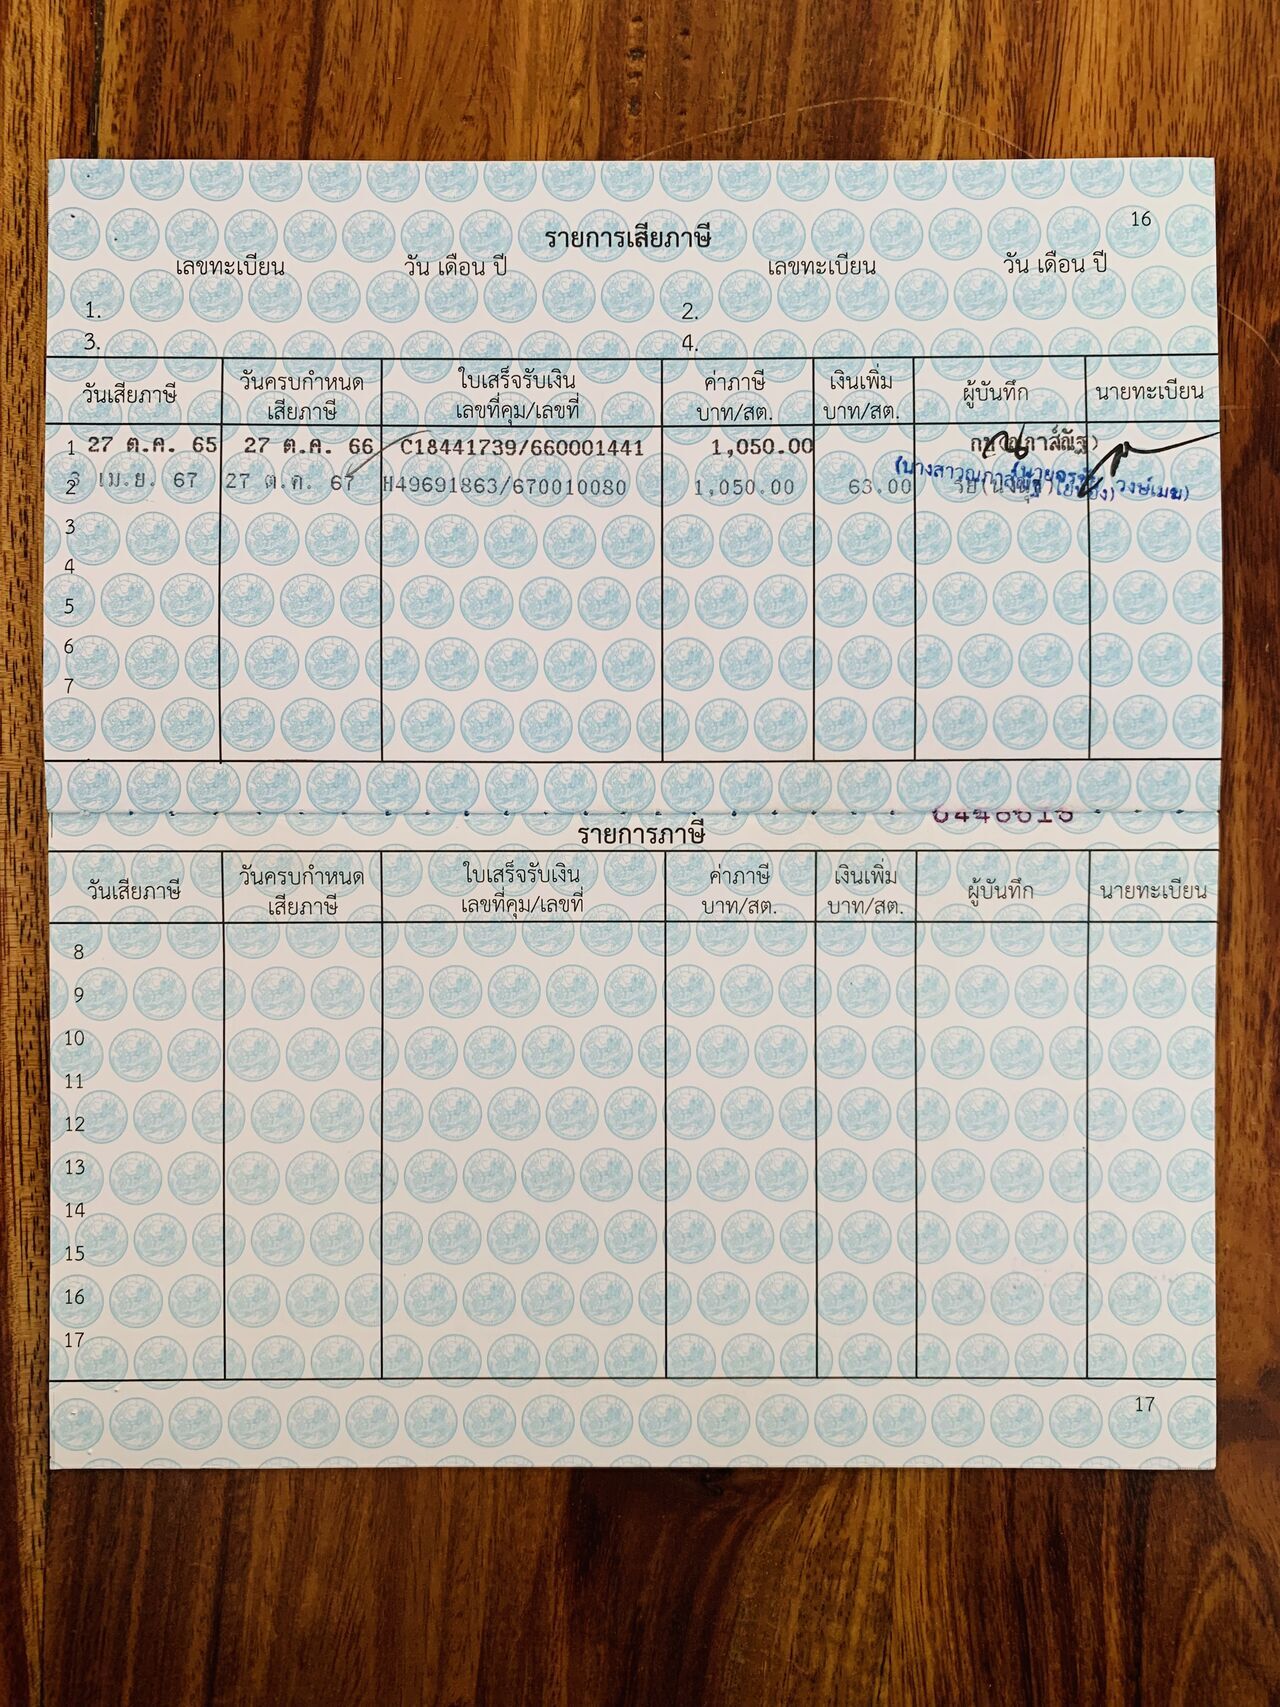 16
รายการเสียภาษี
เลขทะเบียน วัน เดือน ปี เลขทะเบียน วัน เดือน ปี
1. 2.
3. 4.
วันเสียภาษี วันครบกำหนด เสียภาษี ใบเสร็จรับเงิน เลขที่คุม/เลขที่ ค่าภาษี บาท/สต. เงินเพิ่ม บาท/สต. ผู้บันทึก นายทะเบียน
1 27 ต.ค. 65 27 ต.ค. 66 C18441739/660001441 1,050.00
2 เม.ย. 67 27 ต.ค. 67 H49691863/670010080 1,050.00 63.00
3
4
5
6
7
รายการภาษี
วันเสียภาษี วันครบกำหนด เสียภาษี ใบเสร็จรับเงิน เลขที่คุม/เลขที่ ค่าภาษี บาท/สต. เงินเพิ่ม บาท/สต. ผู้บันทึก นายทะเบียน
8
9
10
11
12
13
14
15
16
17
17